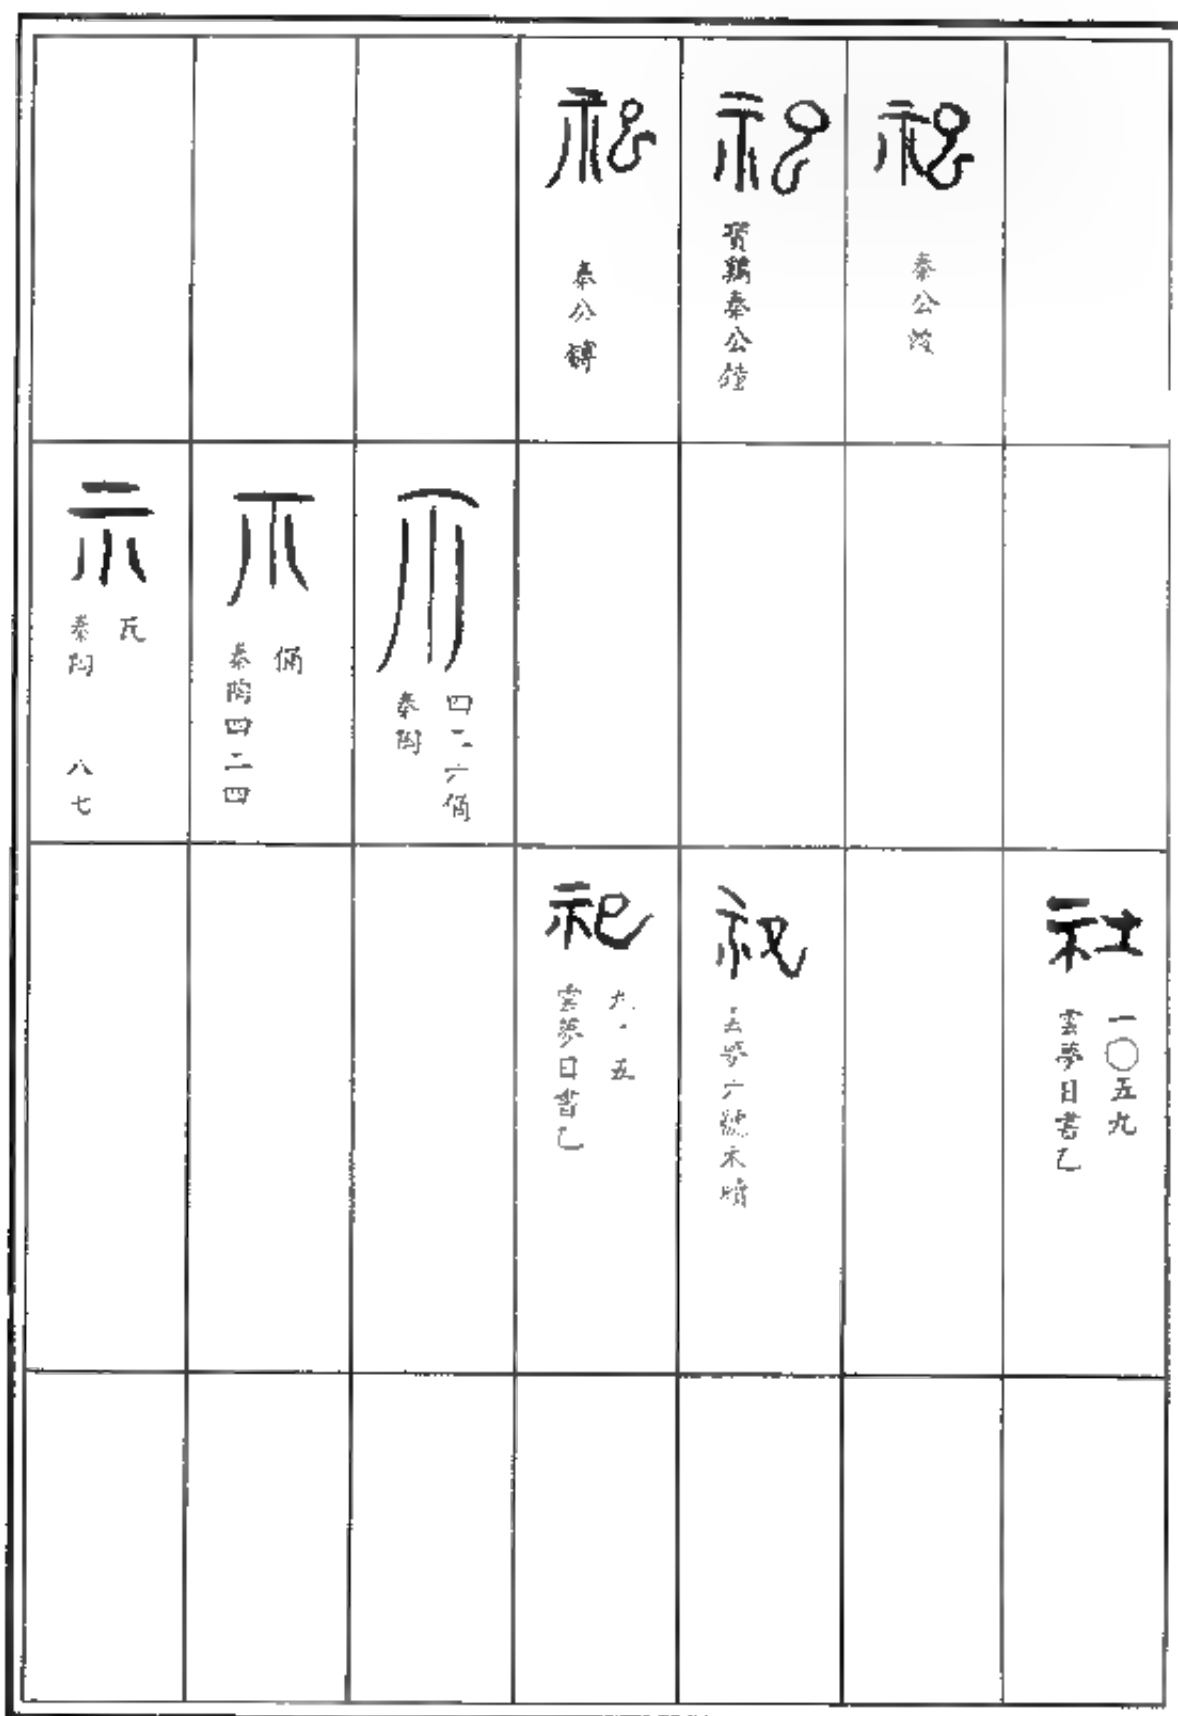 祀
秦公𣪘
祀
寶鷄秦公鐘
祀
秦公鎛
示
四二六俑
秦陶
示
俑
秦陶四二四
示
瓦
秦陶 八七
社
一〇五九
雲夢日書乙
祀
雲夢六號木牘
祀
九·五
雲夢日書乙